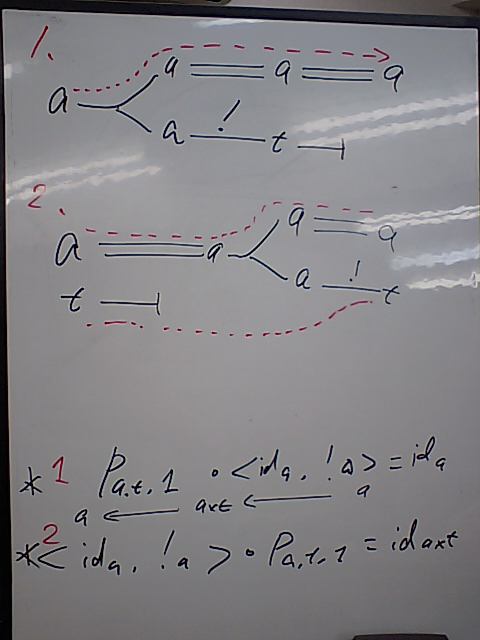 1.
a a a
a
a ! t
2.
a
a a a
a ! t
t
*1 Pa,t,1 ∘ <ida, !a> = ida
a ← a×t ← a
*2 < ida, !a > ∘ Pa,t,1 = id a×t